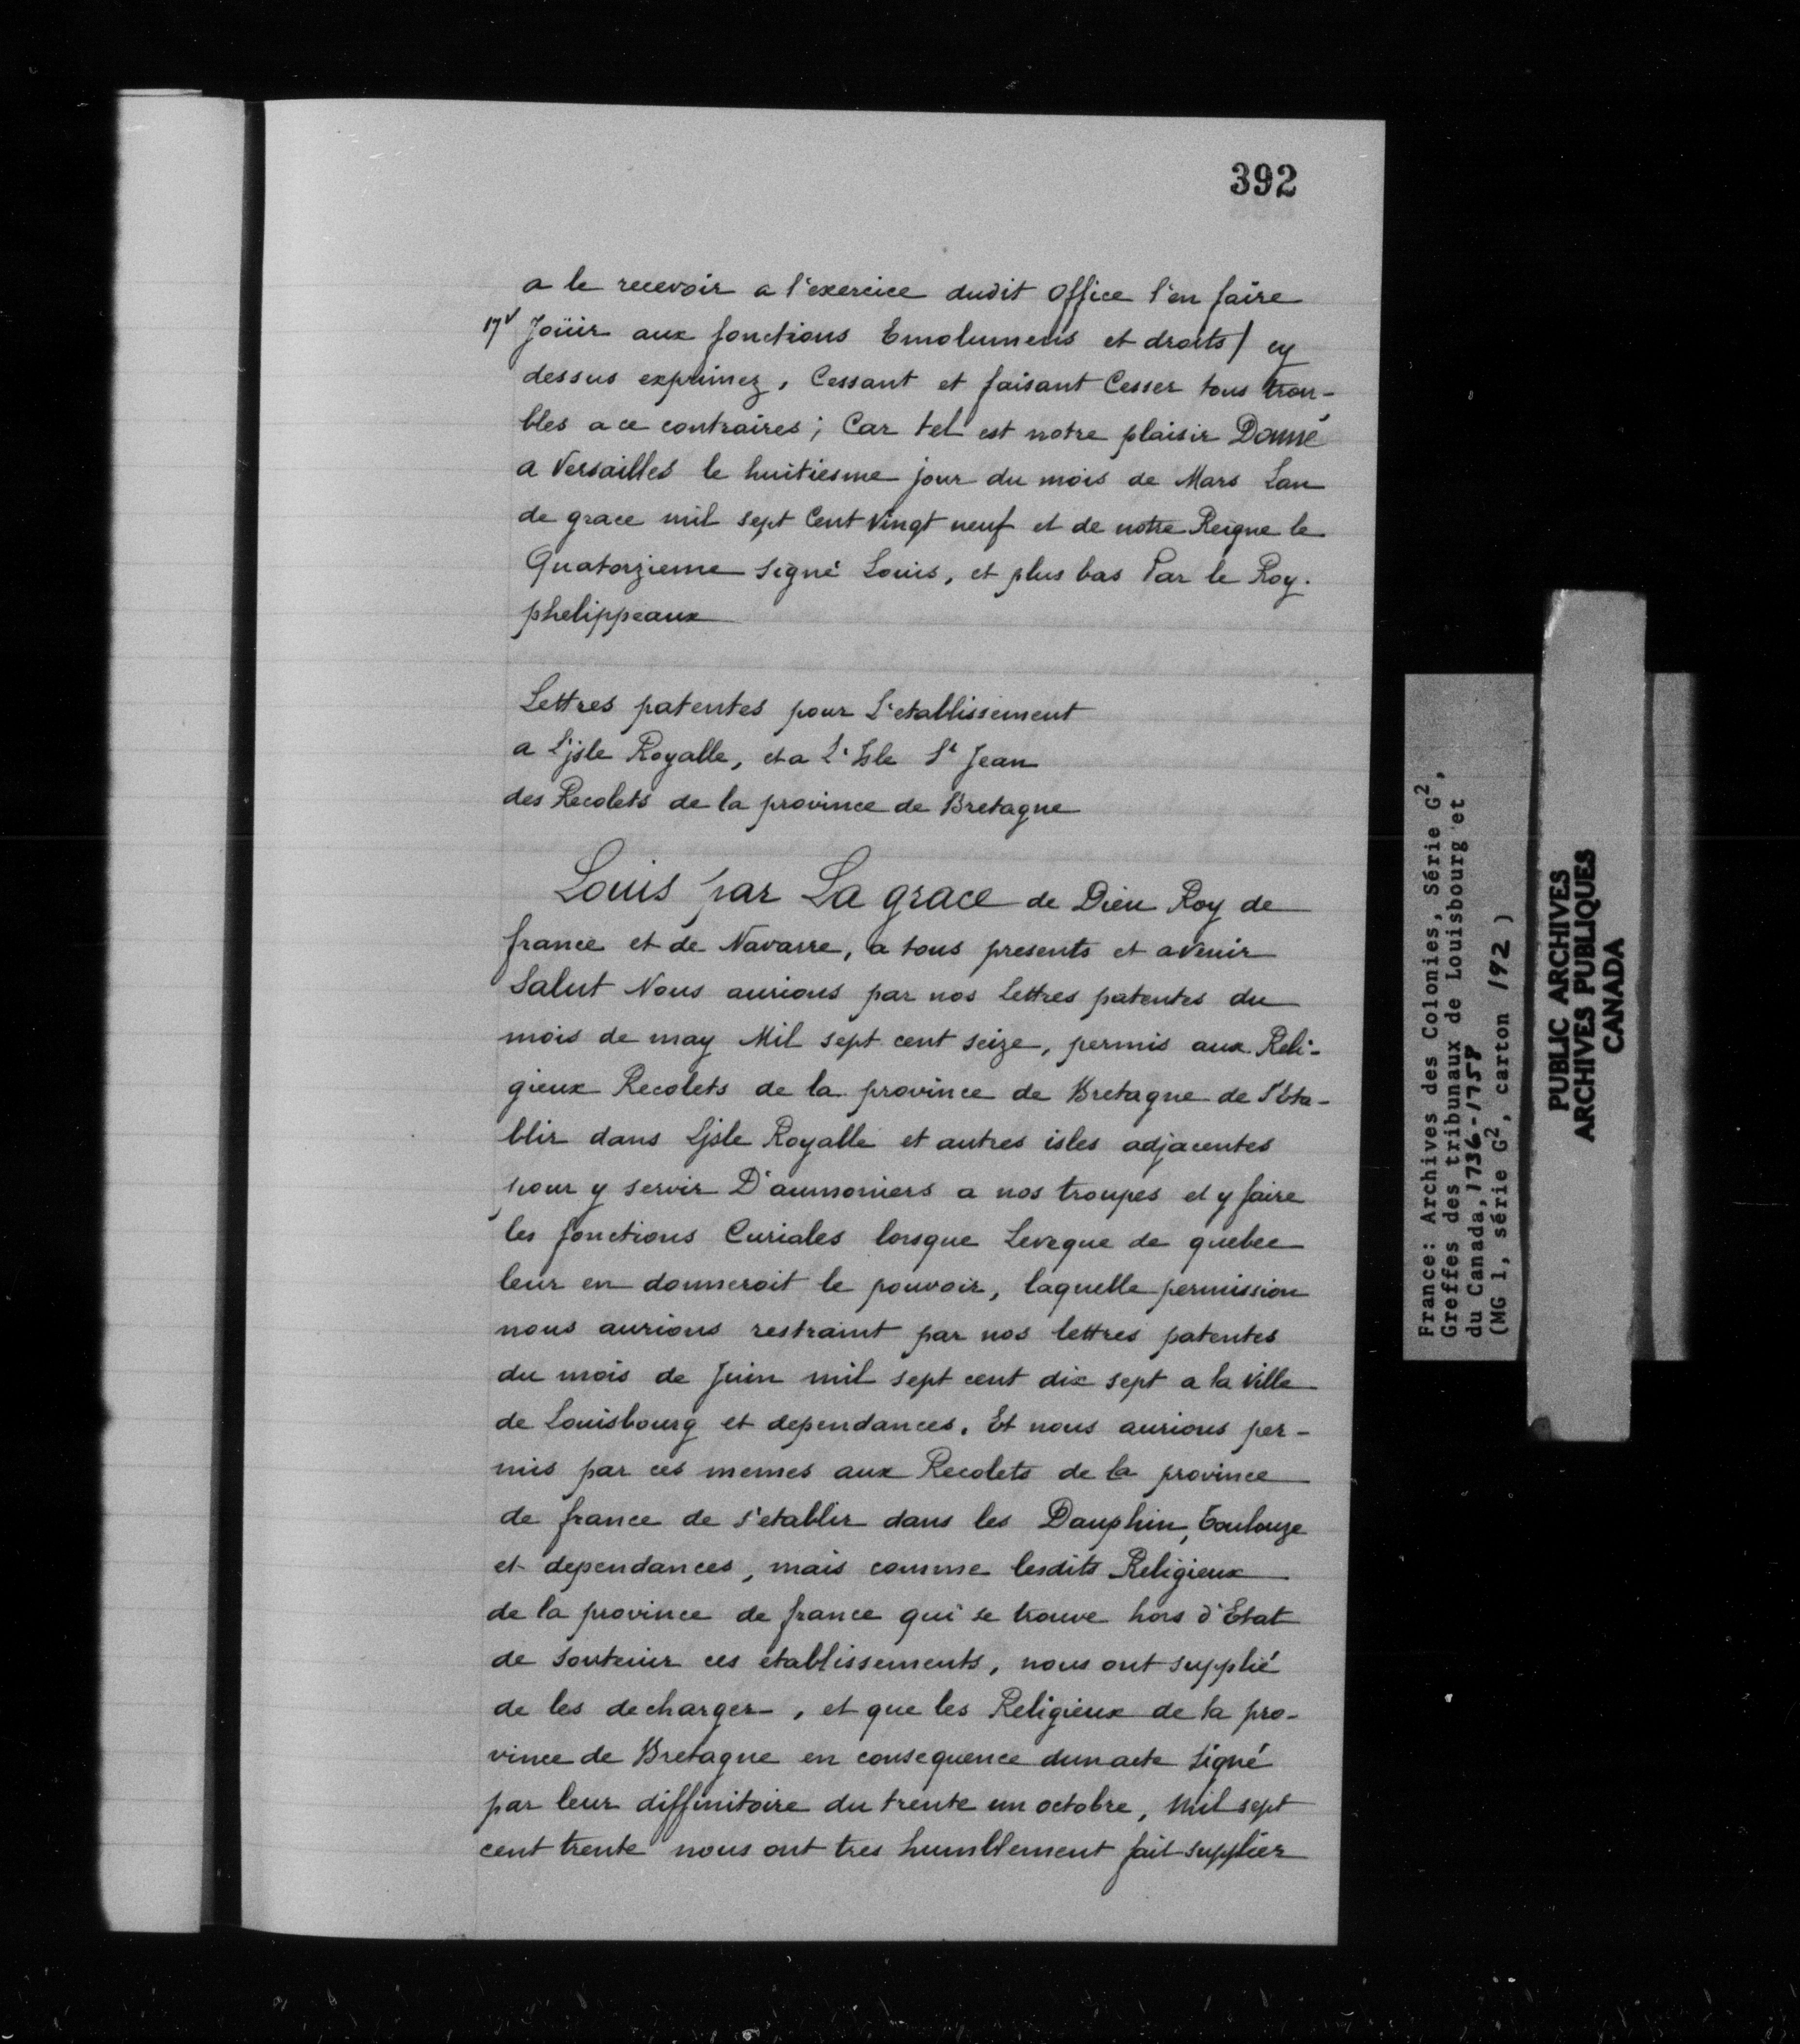 392
a le recevoir a l'exercice dudit office l'en faire
17v Joüir aux fonctions Emolumens et droits / cy
dessus exprimez, Cessant et faisant Cesser tous trou-
bles a ce contraires; Car tel est notre plaisir Donné
a Versailles le huitiesme jour du mois de Mars Lan
de grace mil sept Cent vingt neuf et de notre Reigne le
Quatorzieme signé Louis, et plus bas Par le Roy.
phelippeaux
Lettres patentes pour L'etablissement
a L'jsle Royalle, et a L'Isle St Jean
des Recolets de la province de Bretagne
Louis par La grace de Dieu Roy de
france et de Navarre, a tous presents et avenir
Salut Nous aurions par nos Lettres patentes du
mois de may Mil sept cent seize, permis aux Reli-
gieux Recolets de la province de Bretagne de S'éta-
blir dans Ljsle Royalle et autres isles adjacentes
pour y servir D'aumoniers a nos troupes et y faire
les fonctions Curiales lorsque Leveque de quebec
leur en donneroit le pouvoir, laquelle permission
nous aurions restraint par nos lettres patentes
du mois de Juin mil sept cent dix sept a la ville
de Louisbourg et dependances. Et nous aurions per-
mis par ces memes aux Recolets de la province
de france de s'etablir dans les Dauphin, Toulouze
et dependances, mais comme lesdits Religieux
de la province de france qui se trouve hors d'Etat
de soutenir ces etablissements, nous ont supplié
de les decharger, et que les Religieux de la pro-
vince de Bretagne en consequence dun acte signé
par leur diffinitoire du trente un octobre, Mil sept
cent trente nous ont tres humblement fait supplier
France: Archives des Colonies, Série G2,
Greffes des tribunaux de Louisbourg et
du Canada, 1736-1758
(MG 1, série G2, carton 192)
PUBLIC ARCHIVES
ARCHIVES PUBLIQUES
CANADA